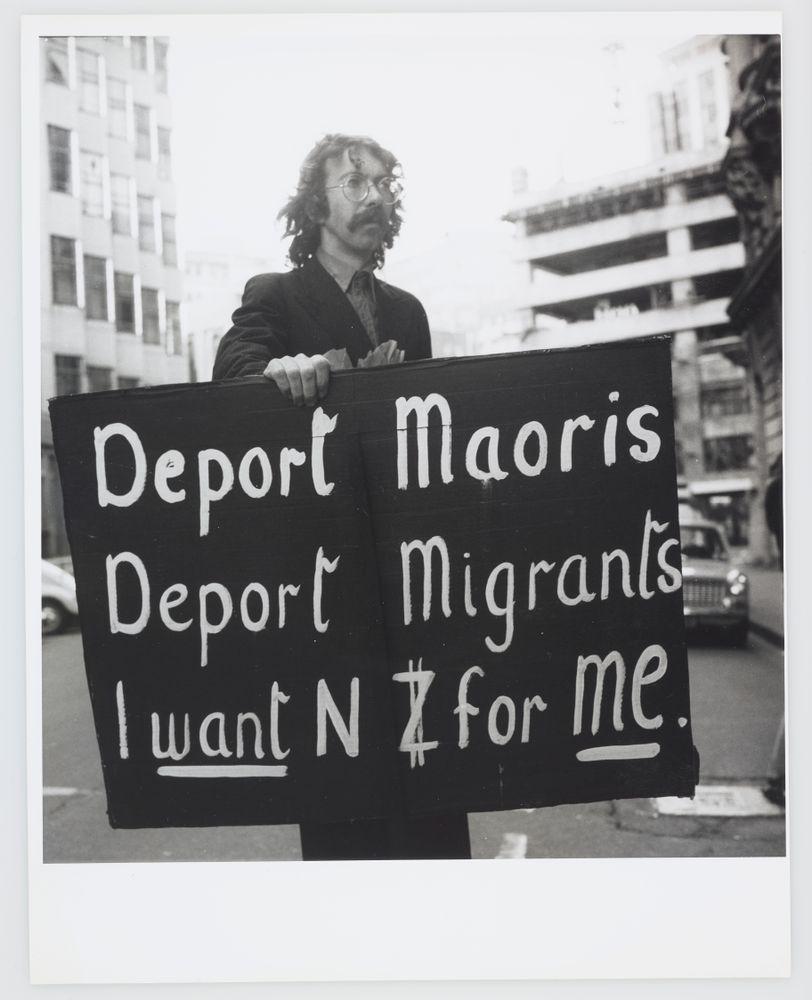 Deport Maoris
Deport Migrants
I want NZ for me.